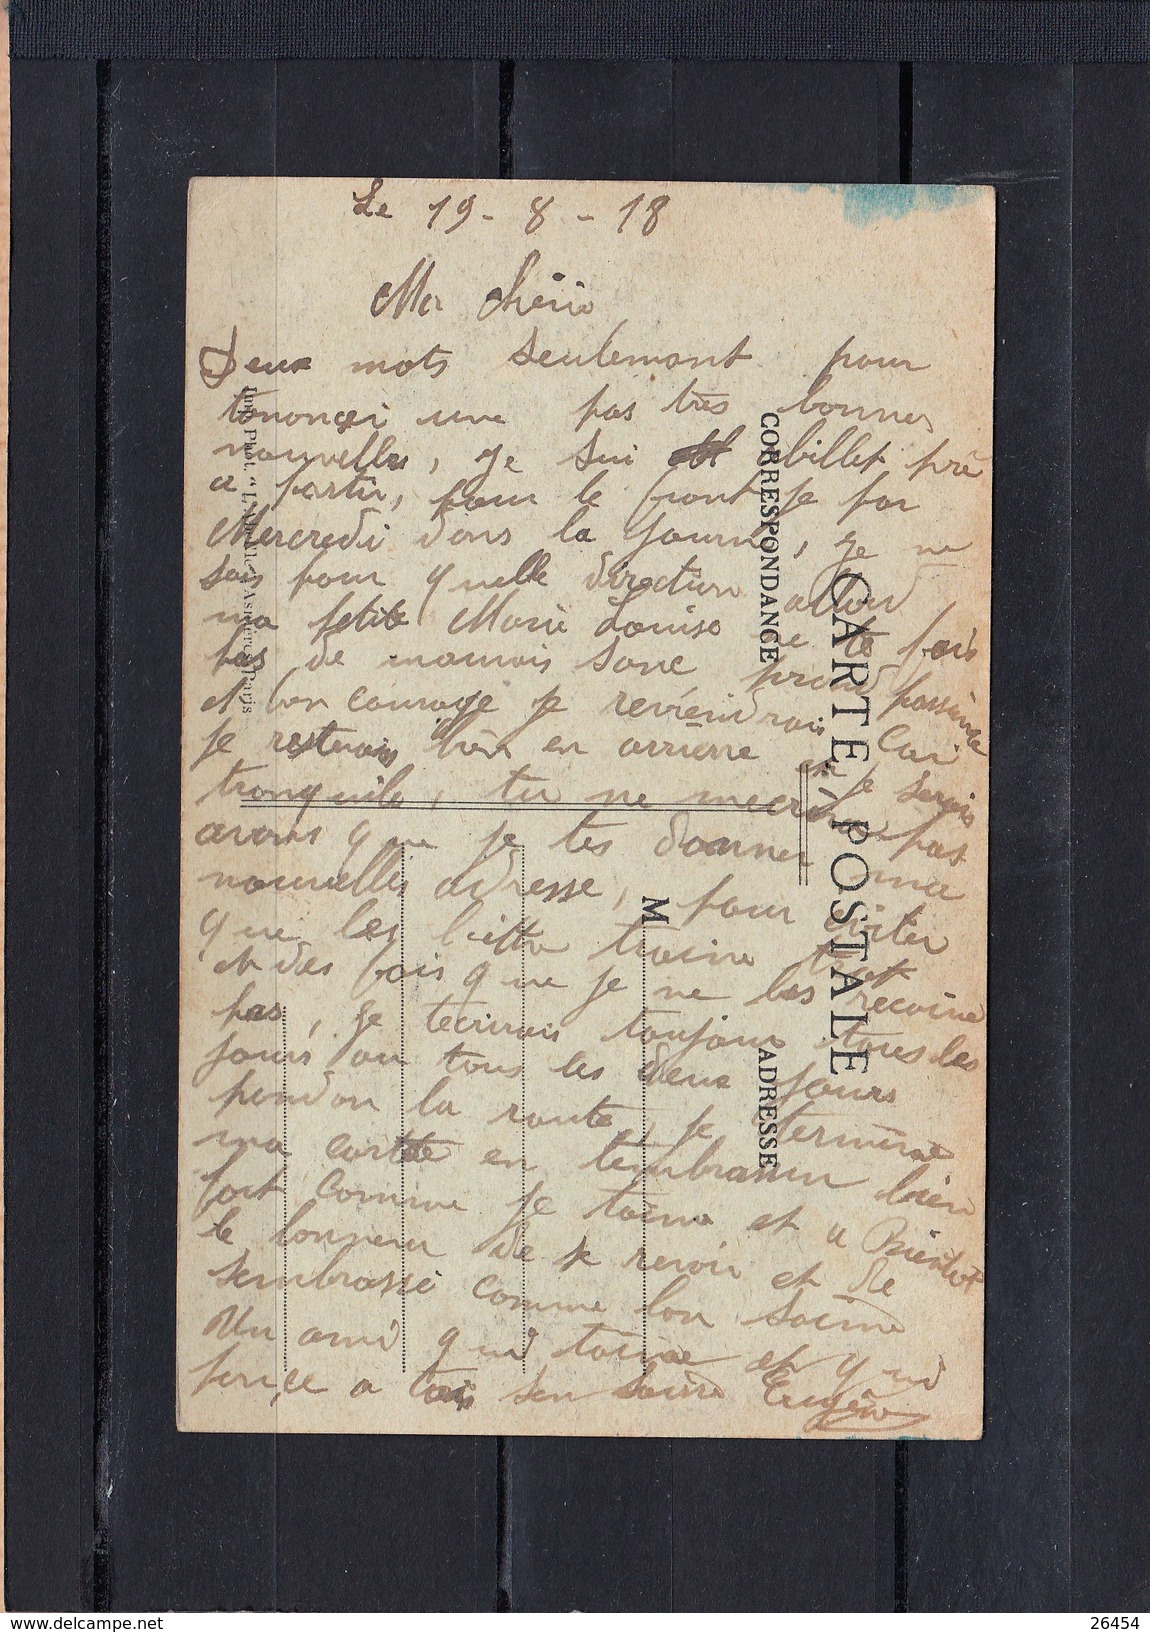 Le 19-8-18
Ma chérie
Deux mots seulement pour
tanonçei une pas très bonnes
nouvelles, je sui billet prè
a partir, pour le front je par
Mercredi dans la journé, je ne
sais pour quelle direction
ma petite Marie Louise ne te fais
pas de mauvais sanc prend passience
et bon courage je reviendrais Car
je resterais bien en arrierre je serais
tranquile, tu ne mecriras pas
avans que je tes donner ma
nouvelles adresse, pour éviter
que les lettre traine
et des fois que je ne les recoive
pas, je tecrirais toujour tous les
jours ou tous les deux jours
pendan la route, je termine
ma carte en tembrassen bien
fort comme je taime et a Bientot
le bonneur de se revoir et de
sembrassé comme lon saime
Un ami qui taime et qui
pense a tois Eugène
CARTE POSTALE
CORRESPONDANCE
ADRESSE
M
Imp. Phot. Asnières-Paris
https://www.delcampe.net
26454